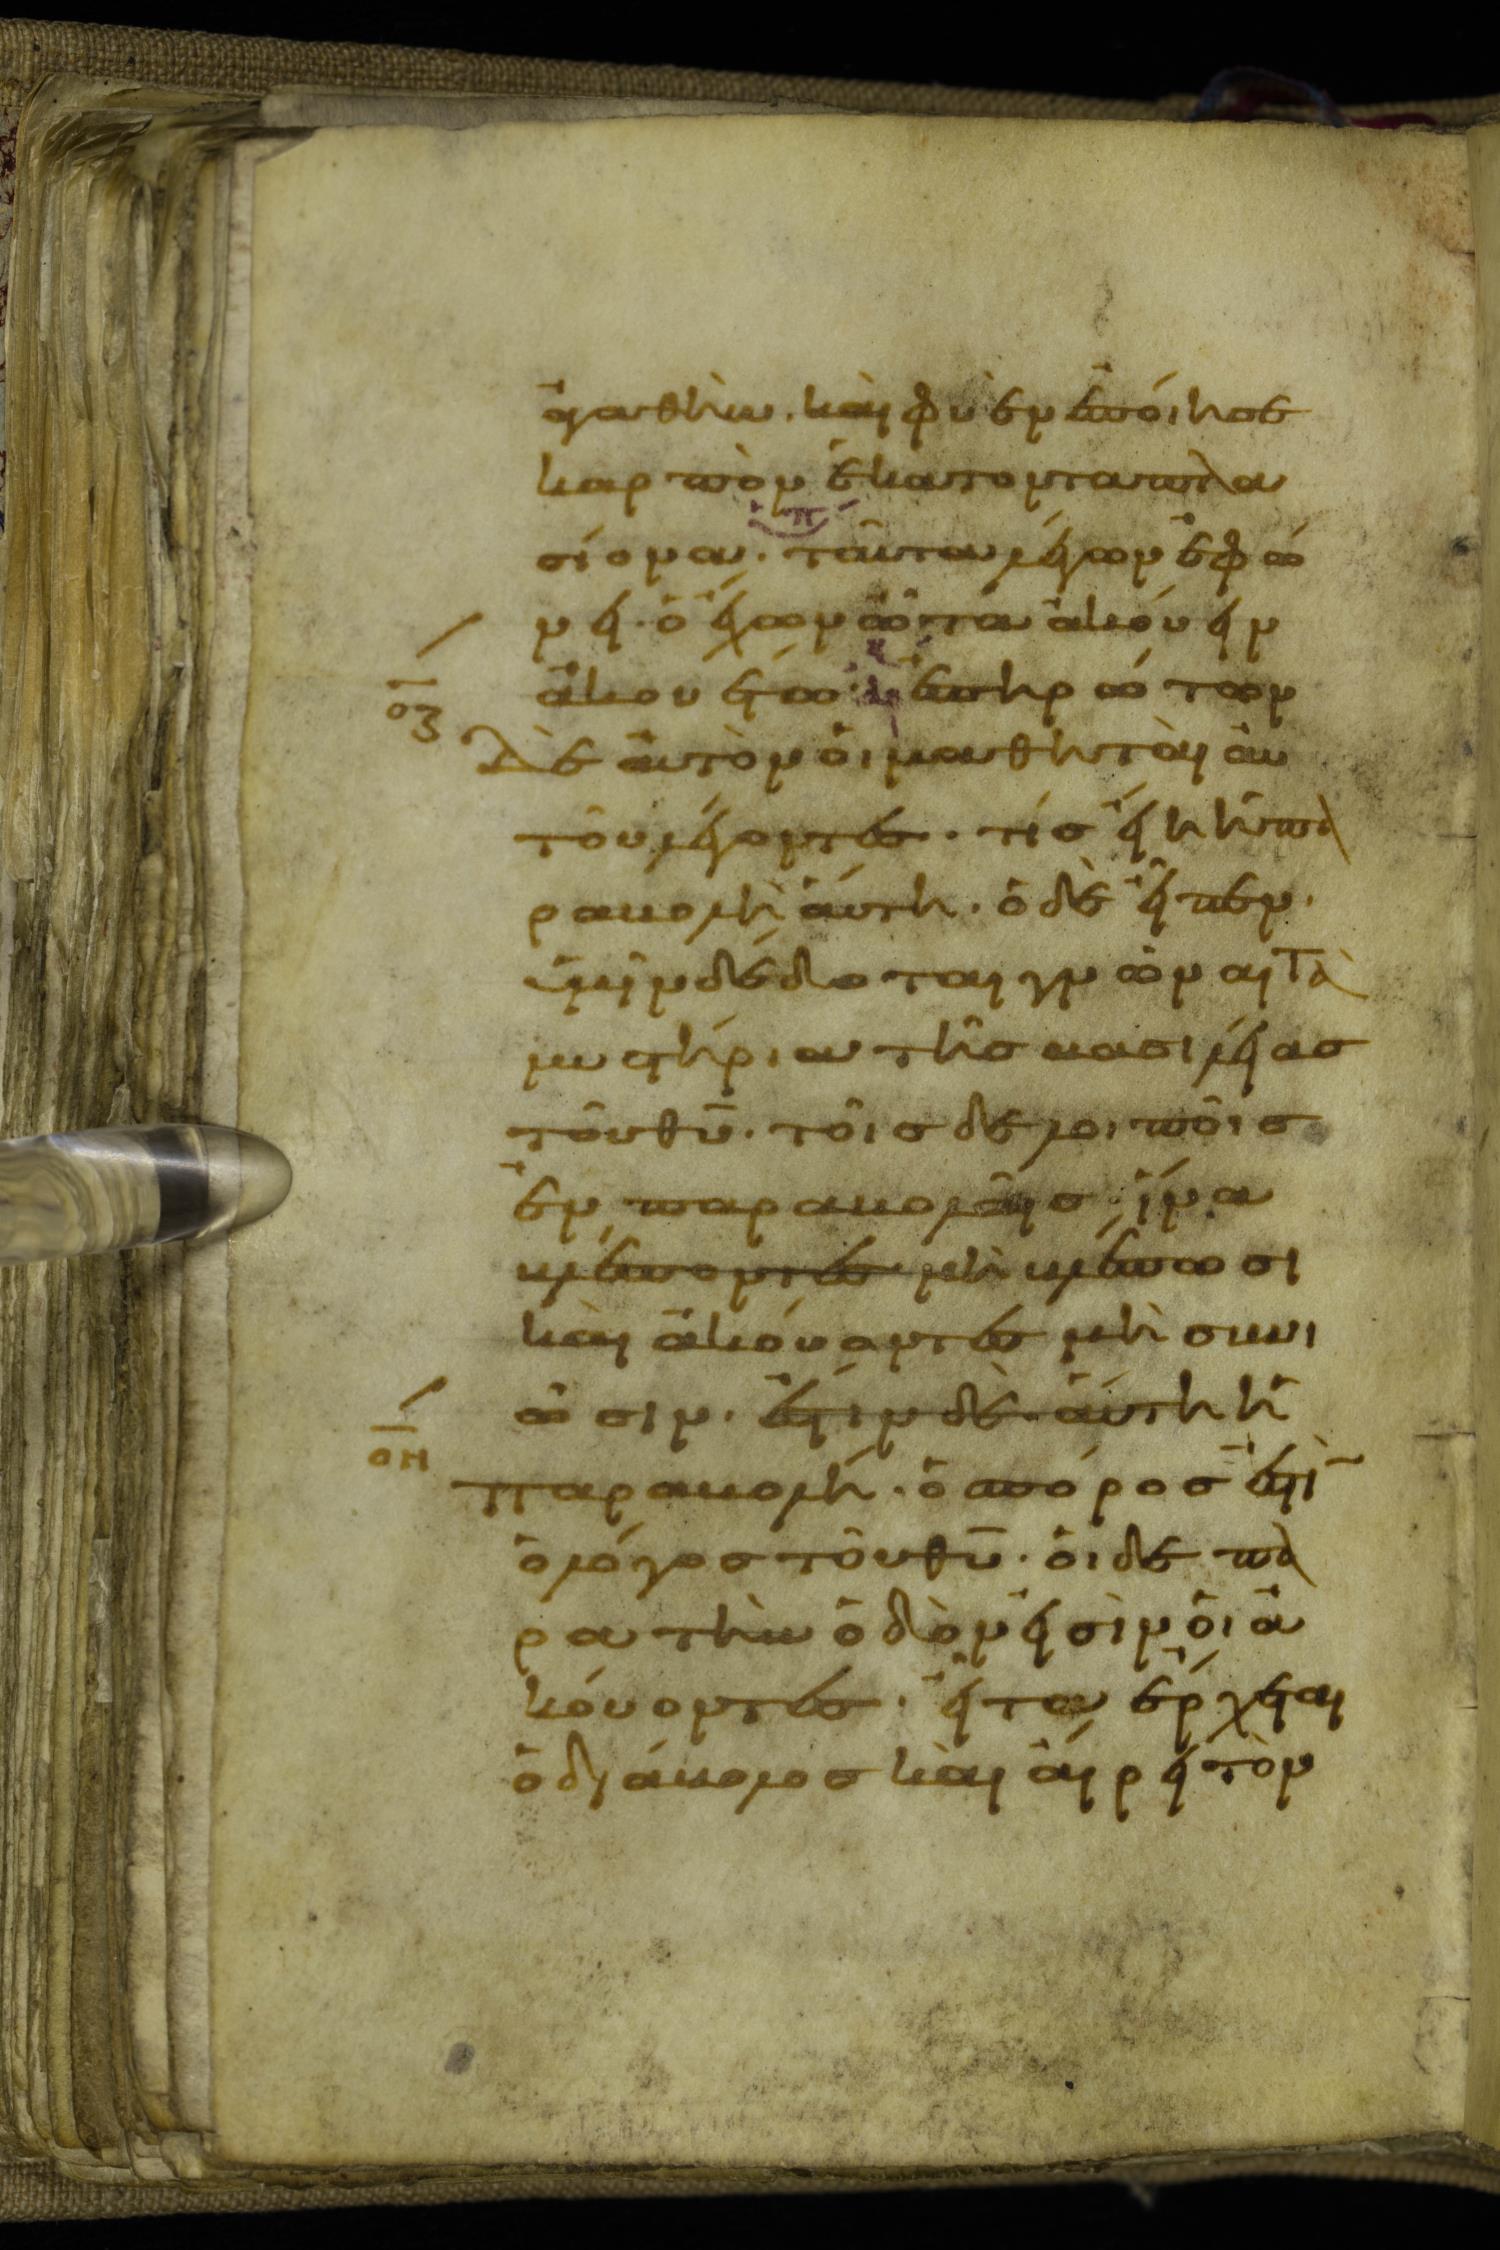 ἀγαθὴν. καὶ φυὲν ἐποίησε
καρπὸν ἑκατονταπλα
σίονα. ταῦτα λέγων ἐφώ
νει. ὁ ἔχων ὦτα ἀκούειν
ἀκουέτω. ἐπηρώτων
οζ
δὲ ἀυτὸν ὁι μαθηταὶ ἀυ
τοῦ λέγοντες. τίς ἔιη ἡ πα
ραβολὴ ἅυτη. ὁ δὲ ἔιπεν.
ὑμῖν δέδοται γνῶναι τὰ
μυστήρια τῆς βασιλείας
τοῦ θυ. τοῖς δὲ λοιποῖς
ἐν παραβολαῖς. ἵνα
βλέποντες μὴ βλέπωσι
καὶ ἀκούοντες μὴ συνι
ῶσιν. ἔστιν δὲ ἅυτη ἡ
οη
παραβολή. ὁ σπόρος ἐστὶν
ὁ λόγος τοῦ θυ. ὁι δὲ πα
ρα τὴν ὁδὸν εἰσὶν ὁι ἀ
κόυοντες. ἔιτα ἔρχεται
ὁ διάβολος καὶ ἄιρει τὸν